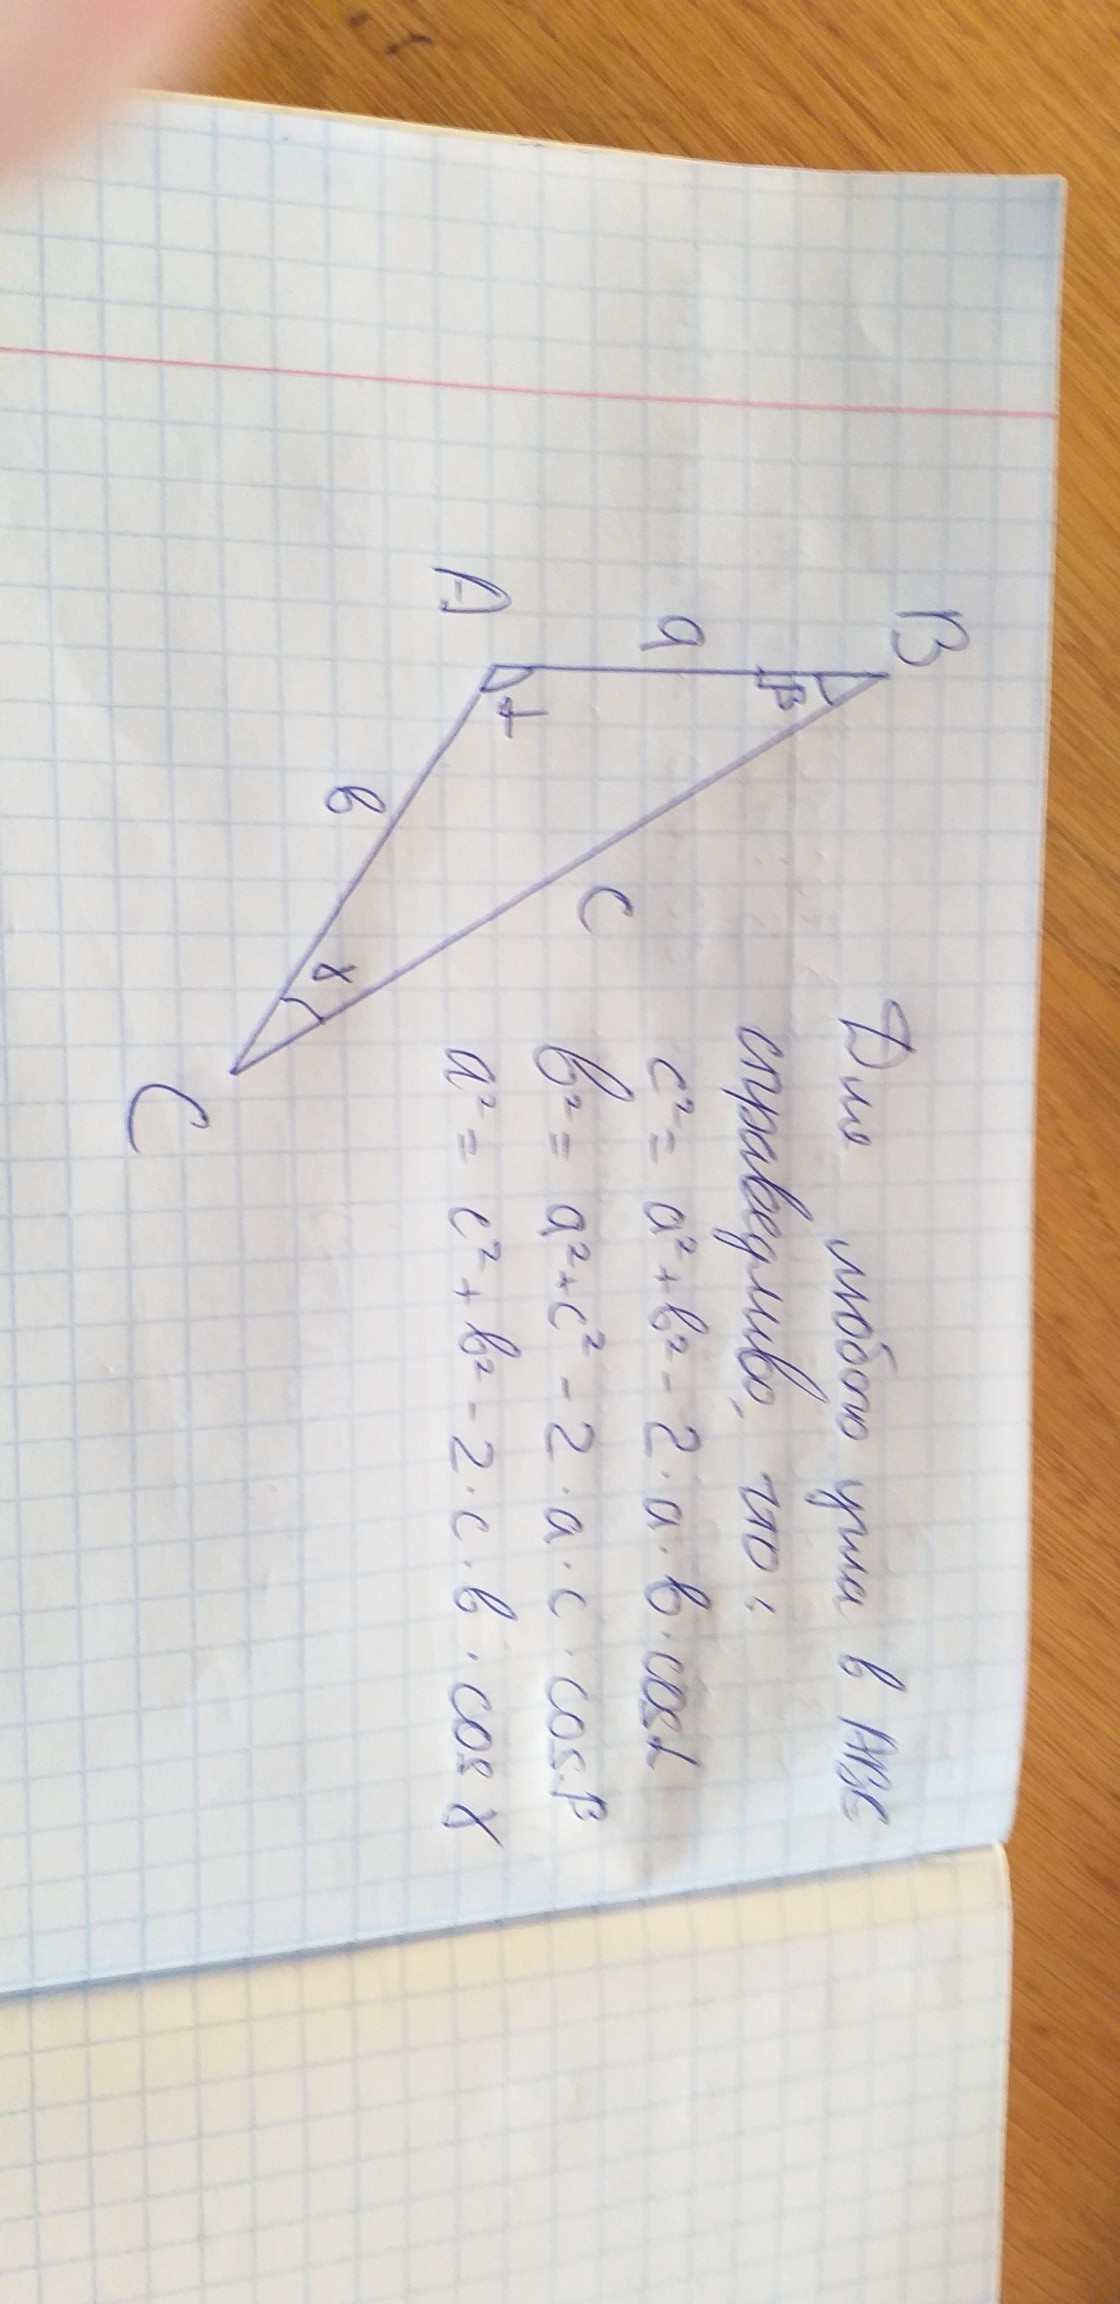 B
a
β
A
α
b
c
γ
C
Для любого угла в ABC
справедливо, что:
c² = a² + b² - 2 · a · b · cos α
b² = a² + c² - 2 · a · c · cos β
a² = c² + b² - 2 · c · b · cos γ